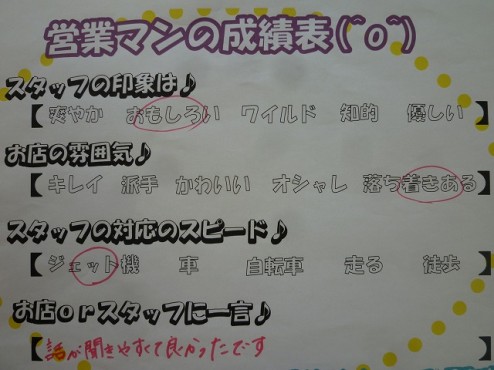 営業マンの成績表(^o^)
スタッフの印象は♪
【爽やか おもしろい ワイルド 知的 優しい】
お店の雰囲気♪
【キレイ 派手 かわいい オシャレ 落ち着きある】
スタッフの対応のスピード♪
【ジェット機 車 自転車 走る 徒歩】
お店orスタッフに一言♪
【話が聞きやすくて良かったです 】